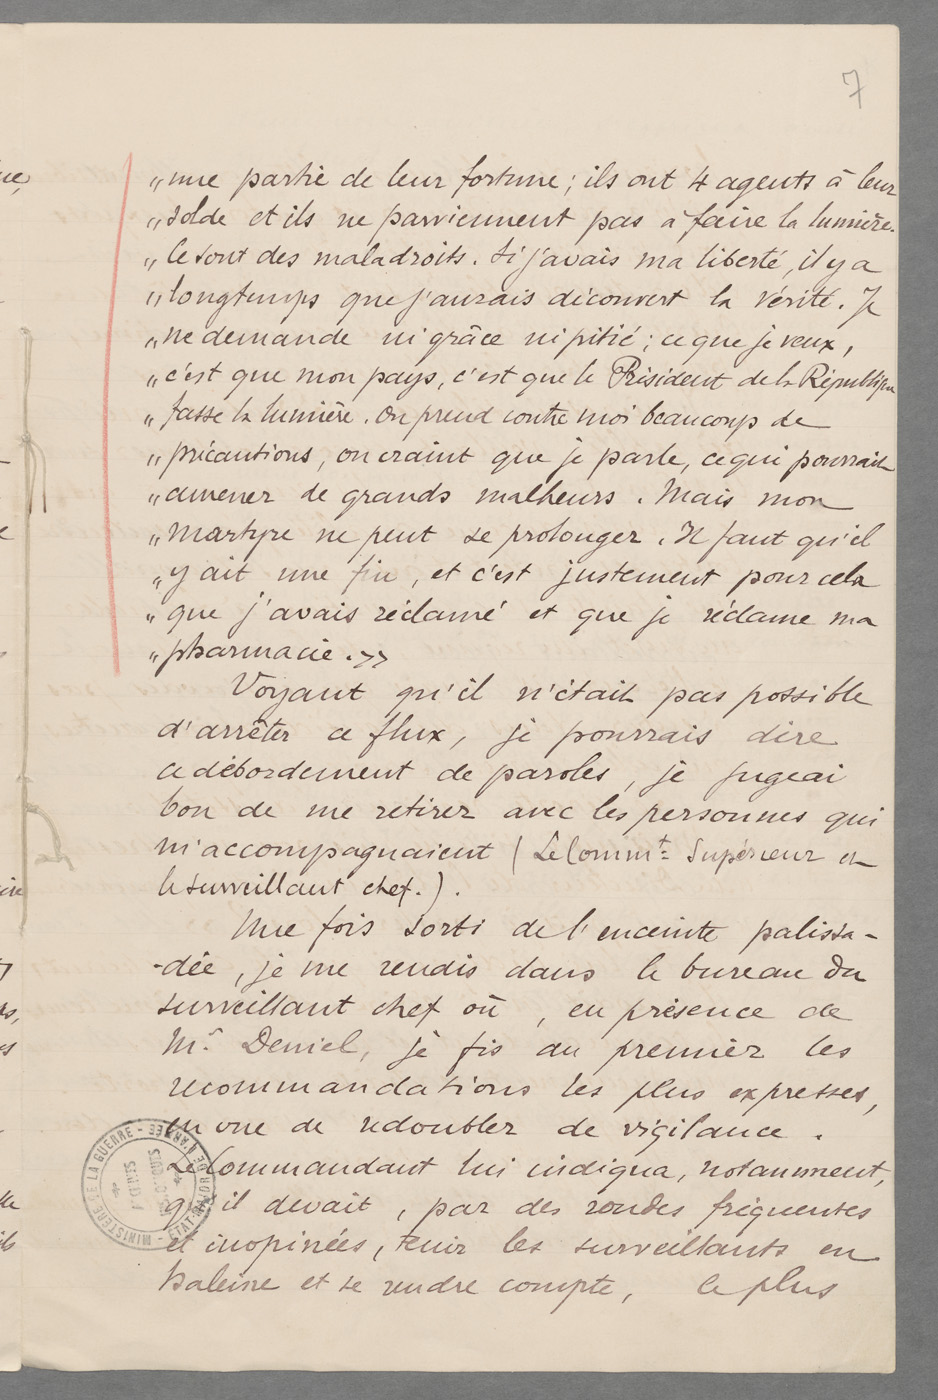 7
„ une partie de leur fortune ; ils ont 4 agents à leur
„ solde et ils ne parviennent pas à faire la lumière.
„ Ce sont des maladroits. Si j'avais ma liberté, il y a
„ longtemps que j'aurais découvert la vérité. Je
„ ne demande ni grâce ni pitié ; ce que je veux,
„ c'est que mon pays, c'est que le Président de la République
„ fasse la lumière. On prend contre moi beaucoup de
„ précautions, on craint que je parle, ce qui pourrait
„ amener de grands malheurs. Mais mon
„ martyre ne peut se prolonger. Il faut qu'il
„ y ait une fin, et c'est justement pour cela
„ que j'avais réclamé et que je réclame ma
„ pharmacie. »
Voyant qu'il n'était pas possible
d'arrêter ce flux, je pourrais dire
ce débordement de paroles, je jugeai
bon de me retirer avec les personnes qui
m'accompagnaient (Le Commt Supérieur et
le surveillant chef.).
Une fois sorti de l'enceinte palissa-
-dée, je me rendis dans le bureau du
surveillant chef où, en présence de
Mr. Deniel, je fis au premier les
recommandations les plus expresses,
en vue de redoubler de vigilance.
Le Commandant lui indiqua, notamment,
qu'il devait, par des rondes fréquentes
et inopinées, tenir les surveillants en
haleine et se rendre compte, le plus
MINISTERE DE LA GUERRE - ETAT-MAJOR DE L'ARMEE